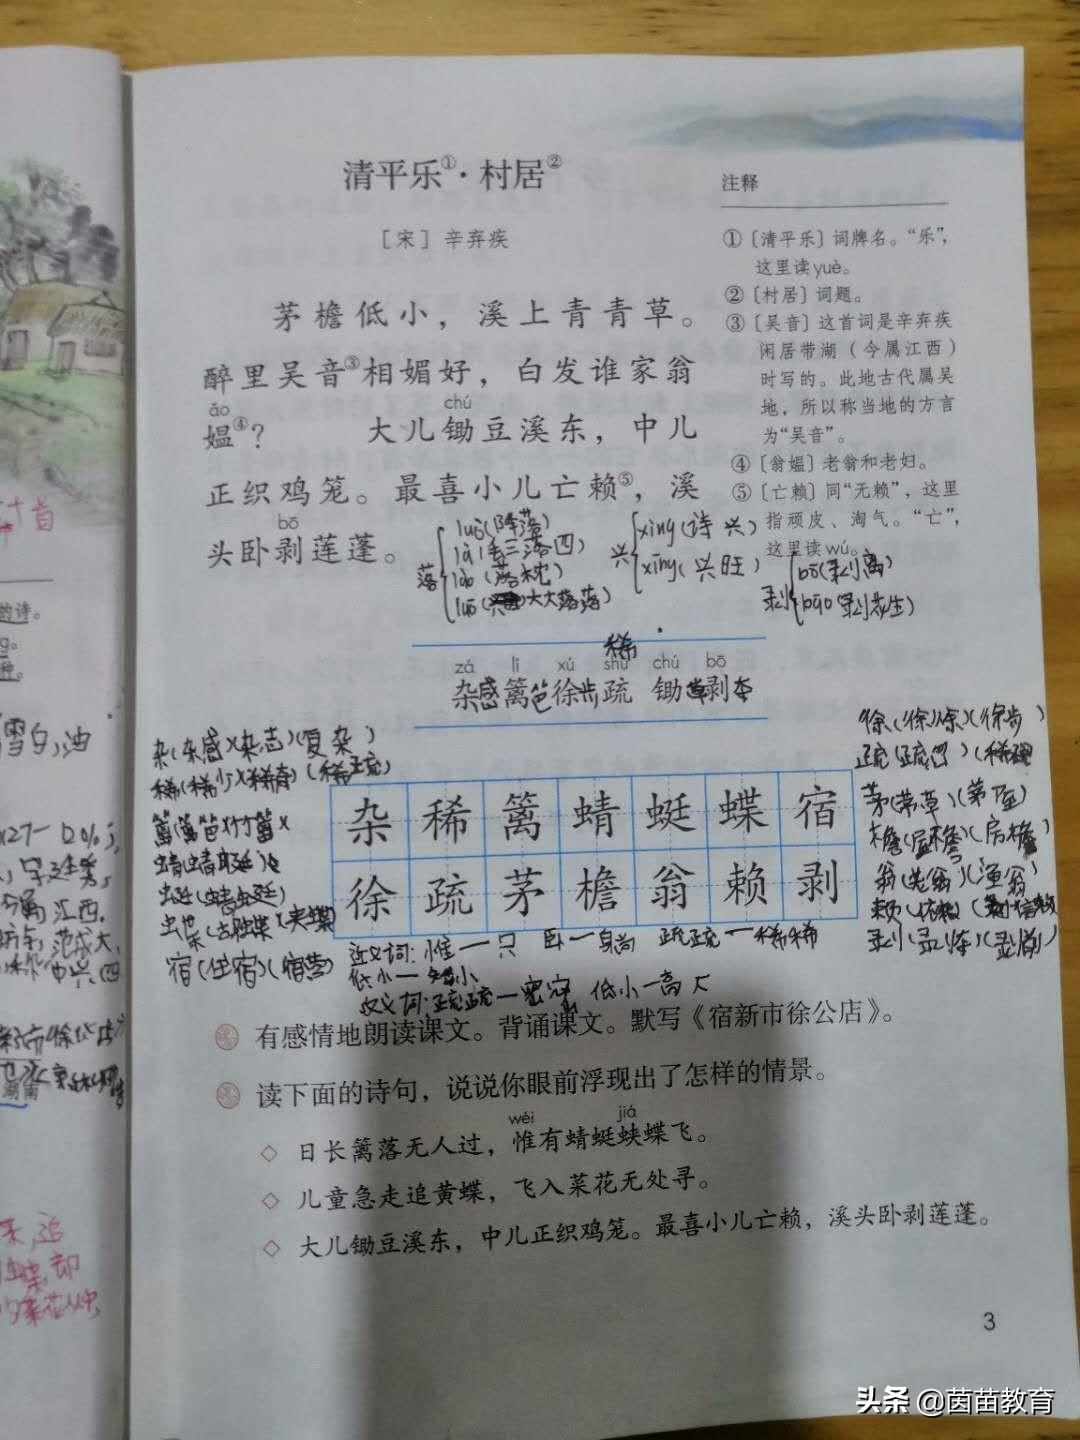 清平乐①·村居②
[宋] 辛弃疾
茅檐低小，溪上青青草。
醉里吴音③相媚好，白发谁家翁
ǎo chú
媪④？ 大儿锄豆溪东，中儿
正织鸡笼。最喜小儿亡赖⑤，溪
bō
头卧剥莲蓬。
注释
①〔清平乐〕词牌名。“乐”，
这里读yuè。
②〔村居〕词题。
③〔吴音〕这首词是辛弃疾
闲居带湖（今属江西）
时写的。此地古代属吴
地，所以称当地的方言
为“吴音”。
④〔翁媪〕老翁和老妇。
⑤〔亡赖〕同“无赖”，这里
指顽皮、淘气。“亡”，
这里读wú。
落
luò(降落)
là(丢三落四)
lào(落枕)
luō(大大落落)
兴
xìng(诗兴)
xīng(兴旺)
剥
bō(剥离)
bāo(剥花生)
稀
zá lí xú shū chú bō
杂感篱笆徐步疏 锄草剥夺
杂(杂感)(杂志)(复杂)
稀(稀少)(稀奇)(稀疏)
篱(篱笆)(竹篱)
蜻(蜻蜓)
蜓(蜻蜓)
蝶(蝴蝶)(蛱蝶)
宿(住宿)(宿营)
徐(徐徐)(徐步)
茅(茅草)(茅屋)
檐(屋檐)(房檐)
翁(老翁)(渔翁)
杂稀篱蜻蜓蝶宿
徐疏茅檐翁赖剥
近义词: 惟一只 卧一躺 疏疏一稀稀
低小一矮小
反义词: 疏疏一密密 低小一高大
有感情地朗读课文。背诵课文。默写《宿新市徐公店》。
读下面的诗句，说说你眼前浮现出了怎样的情景。
wéi jiá
◇ 日长篱落无人过，惟有蜻蜓蛱蝶飞。
◇ 儿童急走追黄蝶，飞入菜花无处寻。
◇ 大儿锄豆溪东，中儿正织鸡笼。最喜小儿亡赖，溪头卧剥莲蓬。
3
头条 @茵苗教育